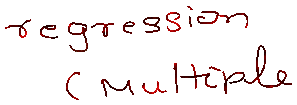 regression
(Multiple